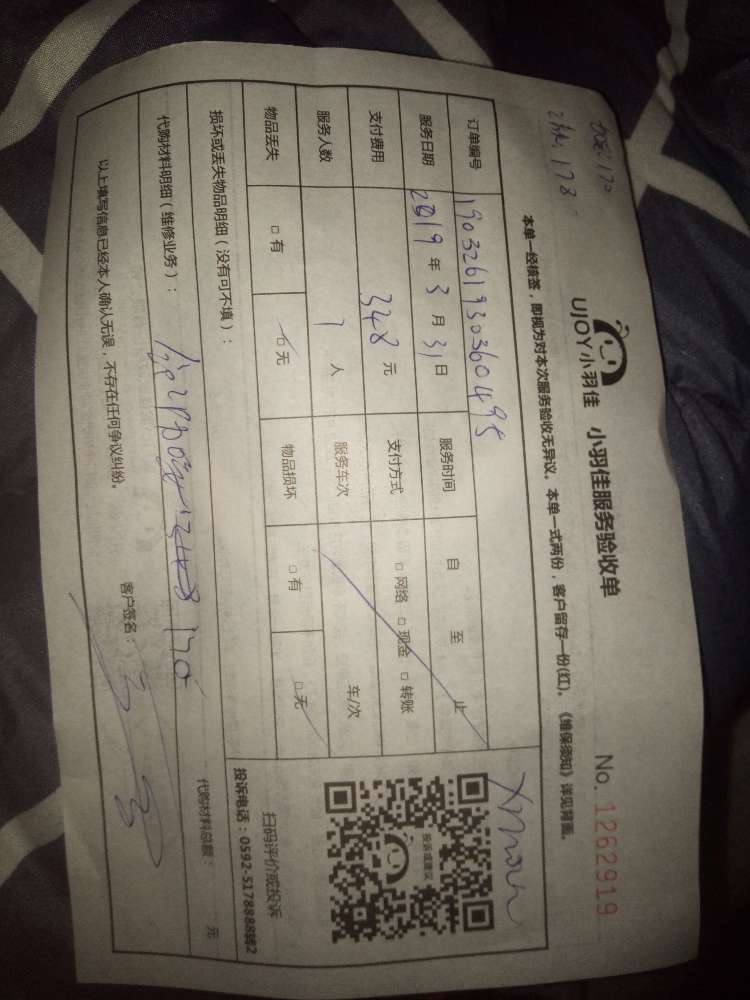 UJOY小羽佳 小羽佳服务验收单
No. 1262919
178
本单一经核签，即视为对本次服务验收无异议。本单一式两份，客户留存一份(红)。《维保须知》详见背面。
订单编号 19032619303604495
服务日期 2019 年 3 月 31 日 服务时间 自 至 止
支付费用 348 元 支付方式 □ 网络 □ 现金 □ 转账
服务人数 1 人 服务车次 车/次
物品丢失 □ 有 □ 无 物品损坏 □ 有 □ 无
损坏或丢失物品明细（没有可不填）：
代购材料明细（维修业务）： 170
代购材料总额： 元
以上填写信息已经本人确认无误，不存在任何争议纠纷。 客户签名：
投诉或建议
扫码评价或投诉
投诉电话：0592-5178888转2